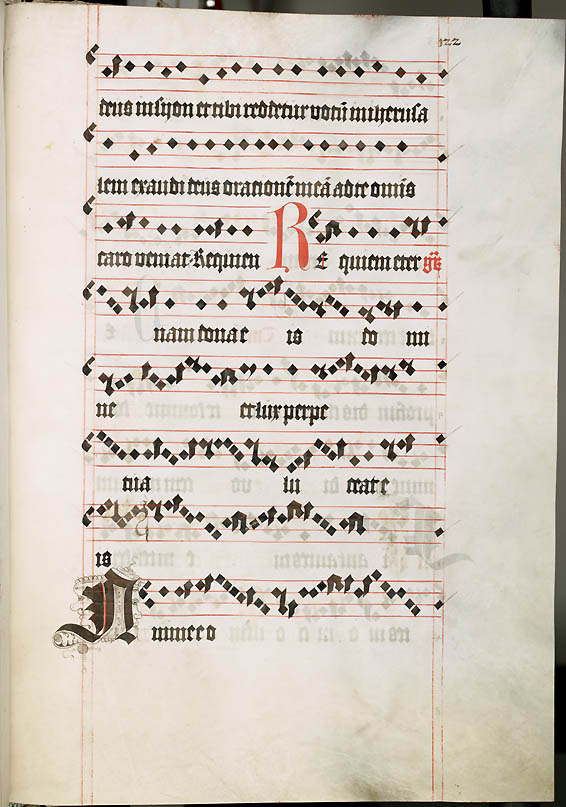 122
deus in syon et tibi reddetur votū in iherusa
lem exaudi deus orationē meā ad te omīs
caro veniat Requiem RE quiem eter
nam dona e is do mi
ne et lux perpe
tua lu ceat e
is
In mine e o